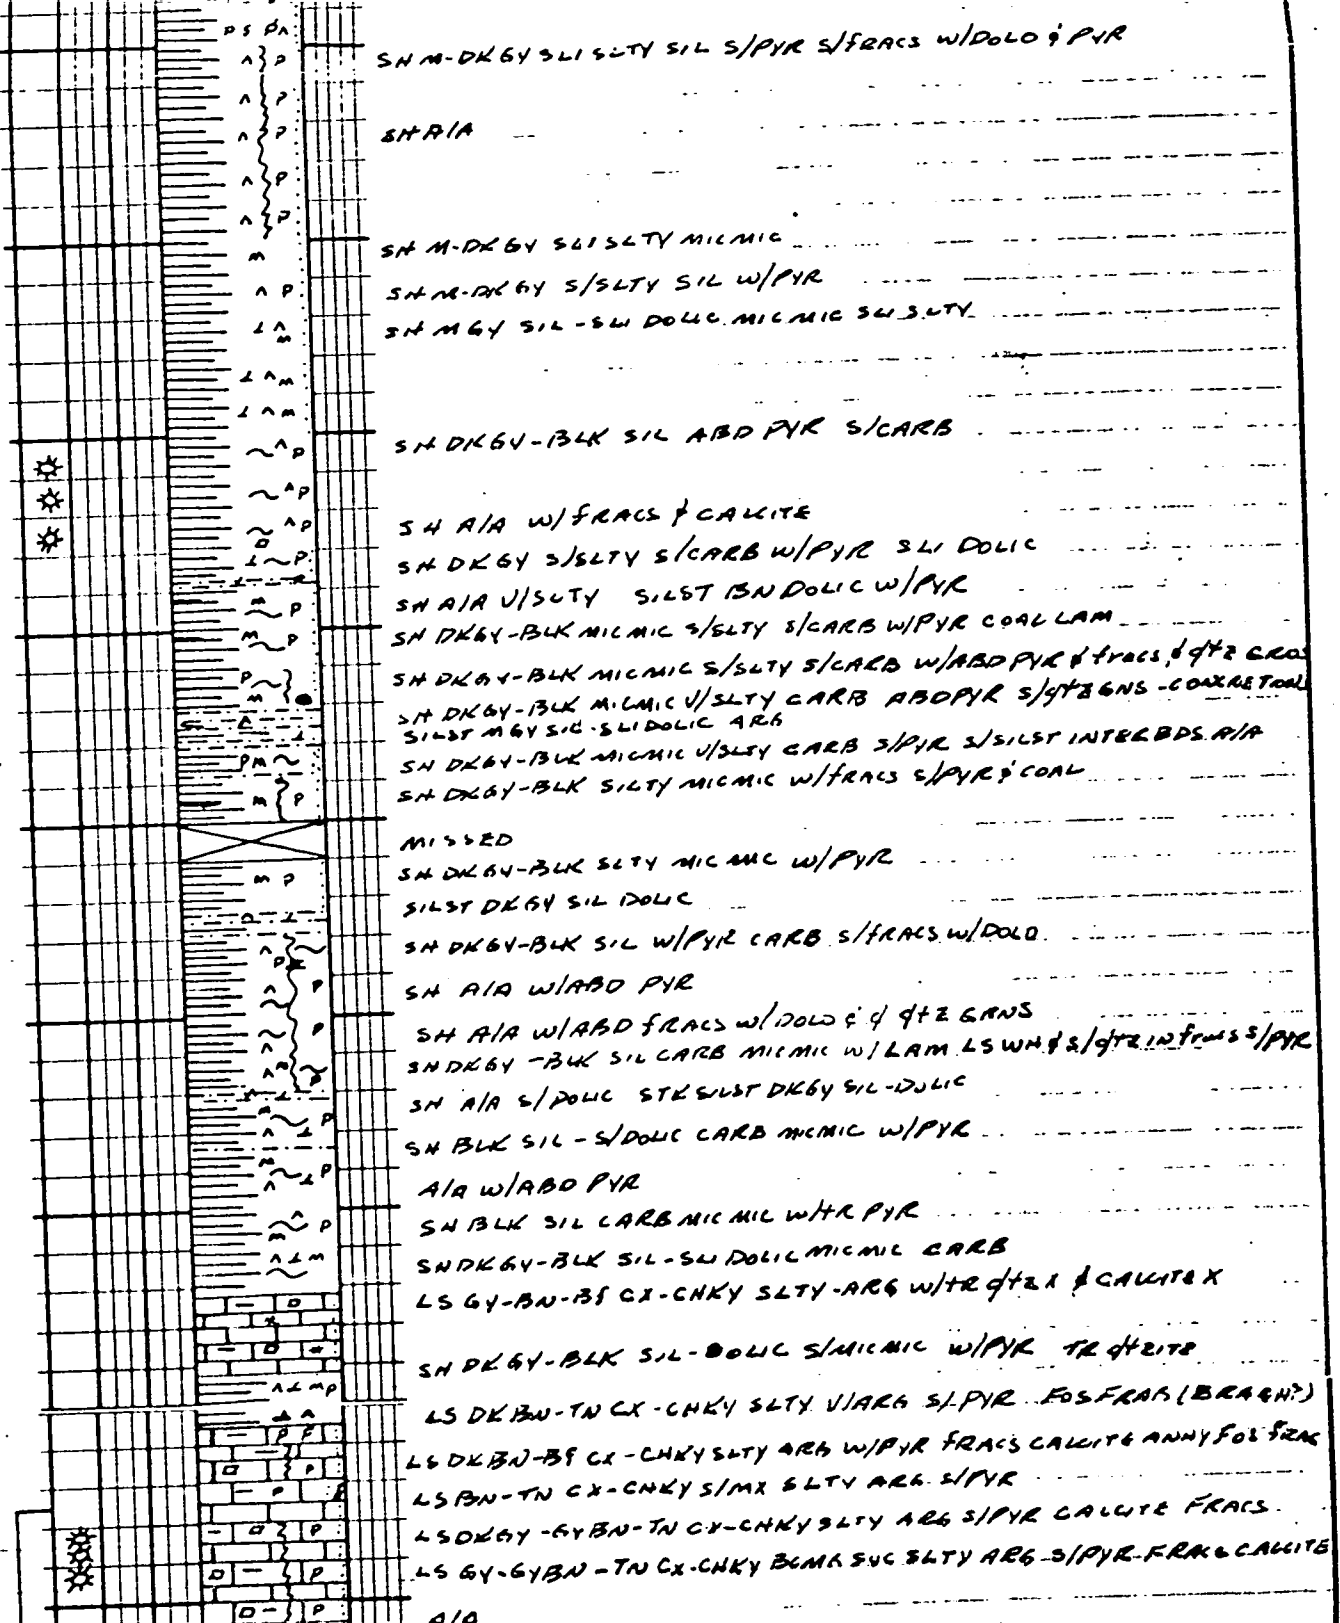 SH M-DKGY SLI SLTY SIL S/PYR S/FRACS W/DOLO & PYR
SH A/A
SH M-DKGY SLI SLTY MICMIC
SH M-DKGY S/SLTY SIL W/PYR
SH MGY SIL-SLI DOLIC MICMIC SLI SLTY
SH DKGY-BLK SIL ABD PYR S/CARB
SH A/A W/FRACS & CALCITE
SH DKGY S/SLTY S/CARB W/PYR SLI DOLIC
SH A/A V/SLTY SILST BN DOLIC W/PYR
SH DKGY-BLK MICMIC S/SLTY S/CARB W/PYR COAL LAM
SH DKGY-BLK MICMIC S/SLTY S/CARB W/ABD PYR & fracs, & qtz
SH DKGY-BLK MICMIC V/SLTY CARB ABDPYR S/qtz GNS -CONCRETIONS
SILST MGY SIL-SLIDOLIC ARG
SH DKGY-BLK MICMIC V/SLTY CARB S/PYR S/SILST INTERBDS A/A
SH DKGY-BLK SILTY MICMIC W/FRACS S/PYR & COAL
MISSED
SH DKGY-BLK SLTY MICMIC W/PYR
SILST DKGY SIL DOLIC
SH DKGY-BLK SIL W/PYR CARB S/FRACS W/DOLO
SH A/A W/ABD PYR
SH A/A W/ABD FRACS W/DOLO & qtz GRNS
SH DKGY-BLK SIL CARB MICMIC W/LAM LS WH & S/qtz in fracs S/PYR
SH A/A S/DOLIC STK SILST DKGY SIL-DOLIC
SH BLK SIL-S/DOLIC CARB MICMIC W/PYR
A/A W/ABD PYR
SH BLK SIL CARB MICMIC W/TR PYR
SH DKGY-BLK SIL-SLI DOLIC MICMIC CARB
LS GY-BN-Bf CX-CHKY SLTY-ARG W/TR qtz X & CALCITE X
SH DKGY-BLK SIL-DOLIC S/MICMIC W/PYR TR qtzITE
LS DKBN-TN CX-CHKY SLTY V/ARG S/PYR FOS FRAG (BRACH?)
LS DKBN-Bf CX-CHKY SLTY ARG W/PYR FRACS CALCITE FOS FRAG
LS BN-TN CX-CHKY S/MX SLTY ARG S/PYR
LS DKGY-GYBN-TN CX-CHKY SLTY ARG S/PYR CALCITE FRACS
LS GY-GYBN-TN CX-CHKY SLTY ARG S/PYR FRAC & CALCITE
A/A